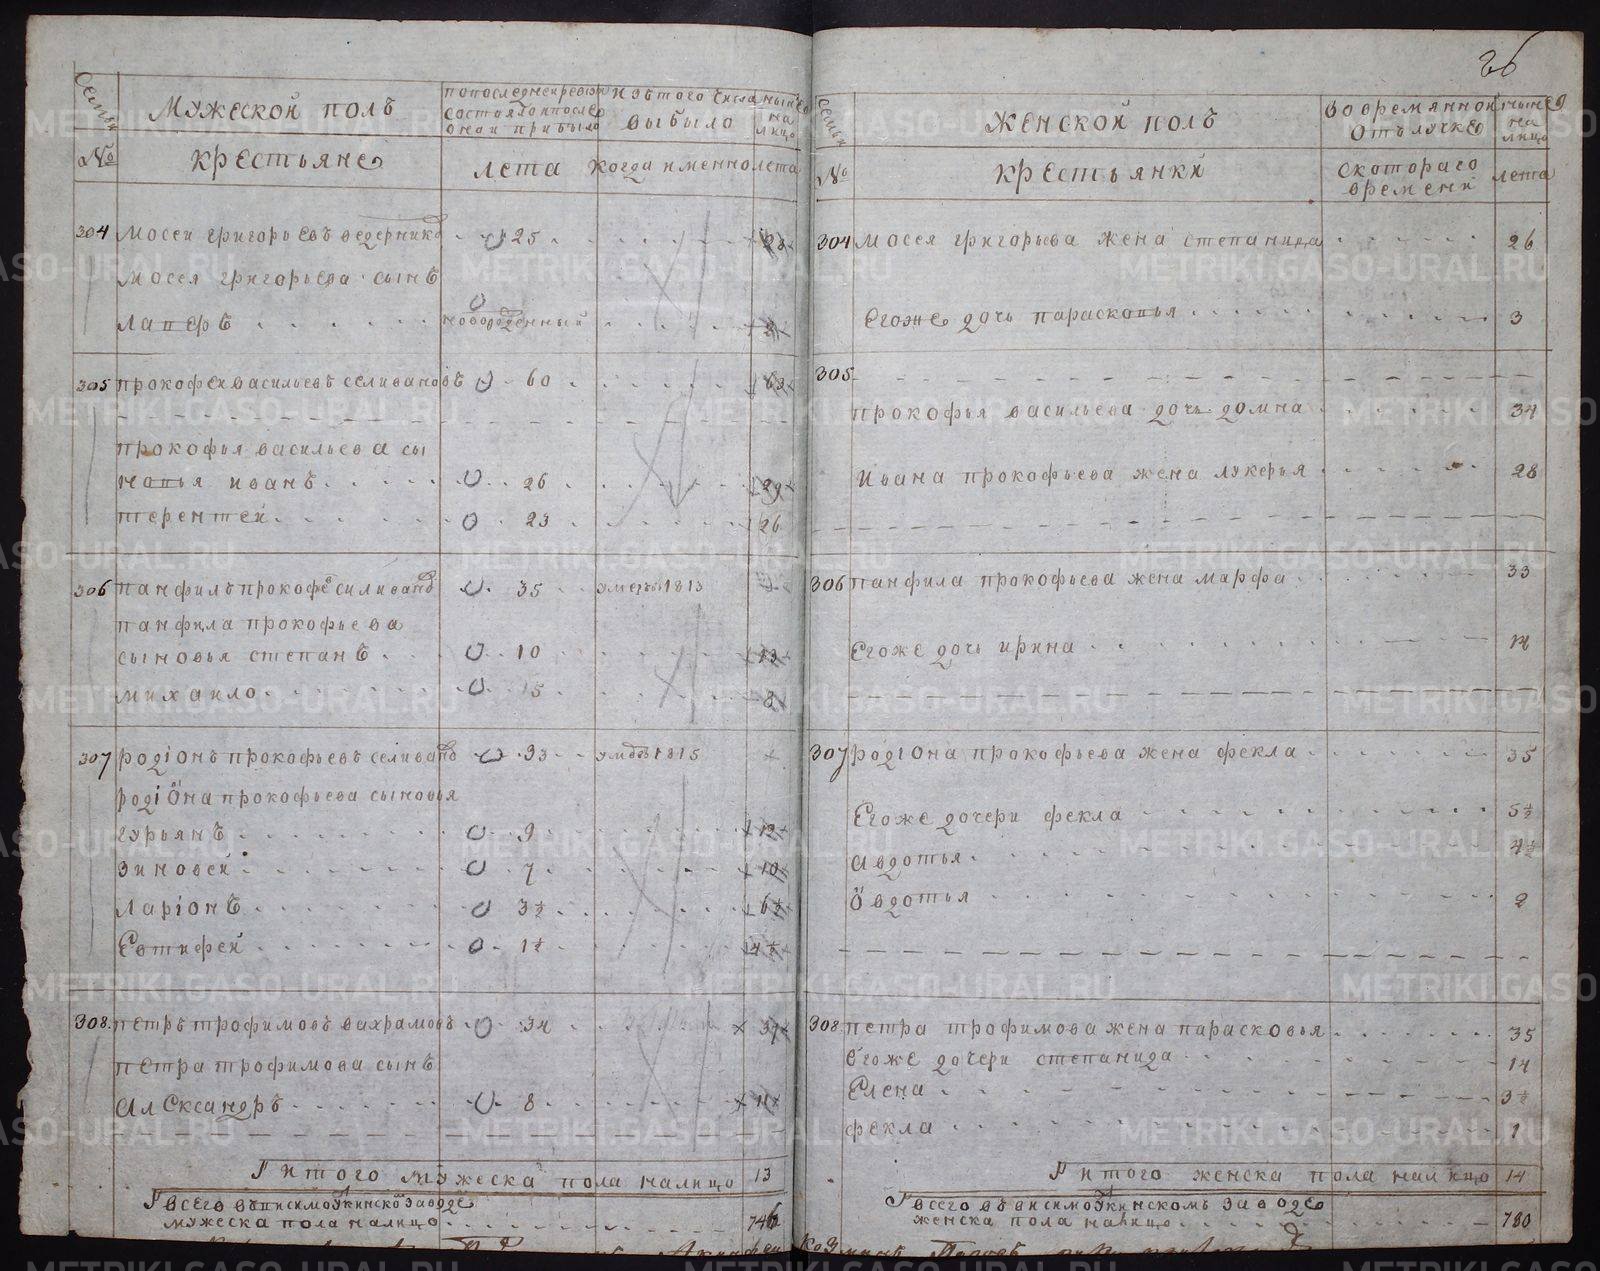 26
Семьи
Мужеской полъ
По последней ревизiи
состояло и после
оной прибыло
Изъ того числа
выбыло
ныне
на
лицо
№
Крестьяне
лета
когда именно
лета
304 Мосеи григорьевъ ведерник 25 28
Мосея григорьева сынъ
Лаперъ новорожденный 3
305 прокофеи васильевъ селивановъ 60 63
прокофья васильева сы
новья иванъ 26 29
терентеи 23 26
306 панфилъ прокофе силивано 35 умеръ 1813
панфила прокофьева
сыновья степанъ 10 13
михаило 15 8
307 родiонъ прокофьевъ селивано 33 умеръ 1815
родiона прокофьева сыновья
гурьянъ 9 12
зиновеи 7 10
Ларiонъ 3½ 6½
Евтифеи 1½ 4½
308. петръ трофимовъ вахрамовъ 34 37
петра трофимова сынъ
александръ 8 11
Итого мужеска пола налицо 13
Всего въ висимоуткинско заводе
мужеска пола налицо 746
семьи
Женской полъ
Во временной
отълучке
ныне
на
лицо
№
крестьянки
с котораго
времени
лета
304 мосея григорьева жена степанида 26
Егоже дочь парасковья 3
305
прокофья васильева дочь домна 34
ивана прокофьева жена лукерья 28
306 панфила прокофьева жена марфа 33
Егоже дочь ирина 14
307 родiона прокофьева жена фекла 35
Егоже дочери фекла 5½
авдотья 4½
овдотья 2
308 петра трофимова жена парасковья 35
егоже дочери степанида 14
Елена 3½
фекла 1
Итого женска пола налицо 14
Всего въ висимоуткинскомъ заводе
женска пола налицо 780
METRIKI.GASO-URAL.RU